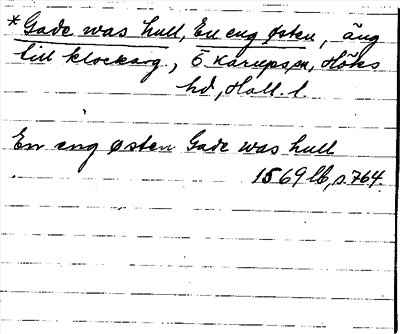 *Gade was hull, En eng østen, äng
till klockarg., Ö. Karups sn, Höks
hd, Hall. l.
En eng østen Gade was hull
1569 lb, s. 764.